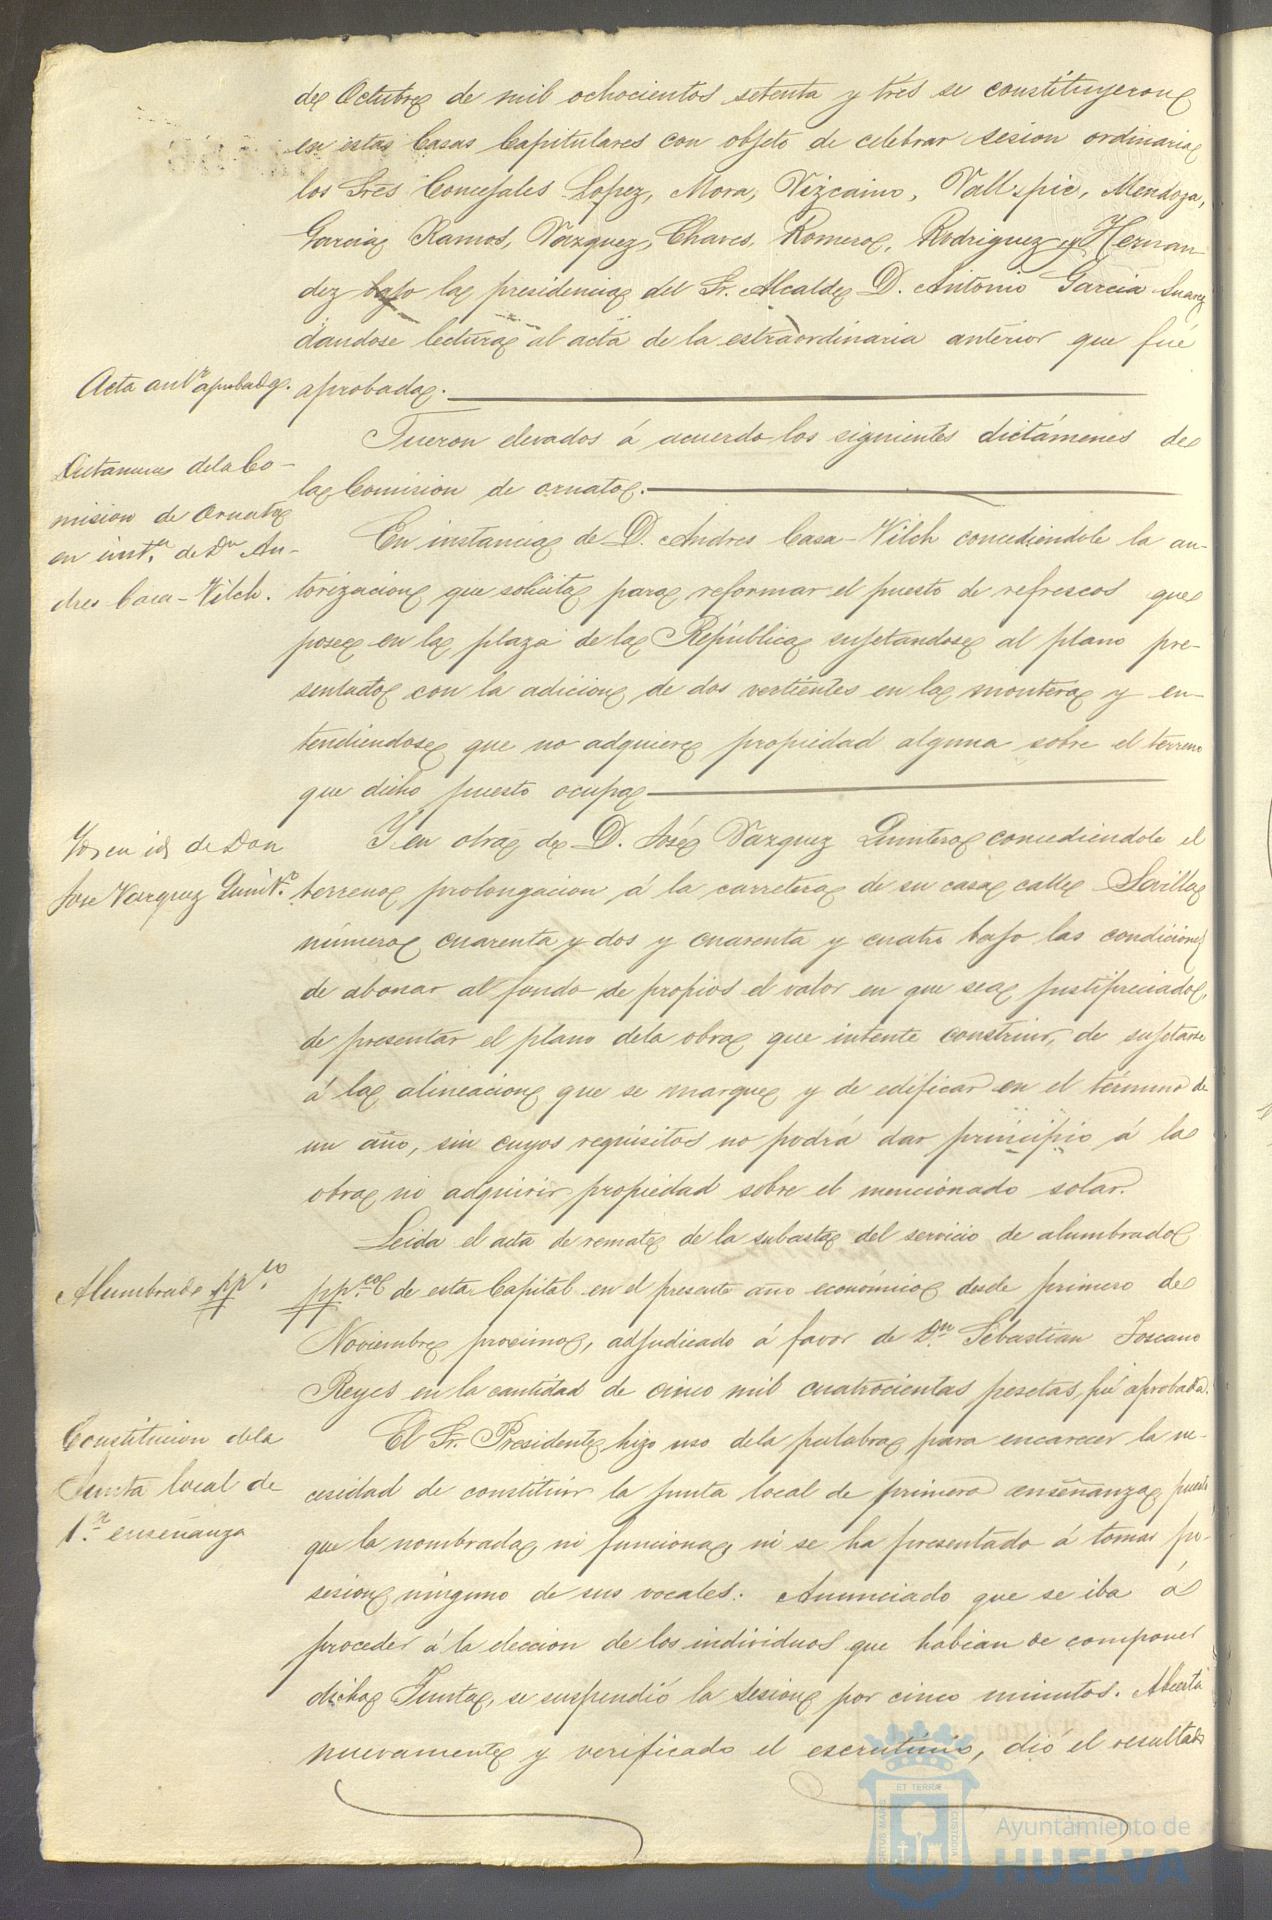 de Octubre de mil ochocientos setenta y tres se constituyeron
en estas Casas Capitulares con objeto de celebrar sesion ordinaria
los Sres Concejales Lopez, Mora, Vizcaino, Vallespie, Mendoza,
Garcia Ramos, Vazquez, Chaves, Romero, Rodriguez y Hernan-
dez bajo la presidencia del Sr. Alcalde D. Antonio Garcia Suarez
dandose lectura al acta de la estraordinaria anterior que fué
Acta antr aprobada.
aprobada.
Fueron elevados á acuerdo los siguientes dictámenes de
la Comision de ornato.
Dictamenes de la Co-
mision de Ornato
en inst.a de Dn An-
dres Casa-Vilch.
En instancia de D. Andres Casa-Vilch concediendole la au-
torizacion que solicita para reformar el puesto de refrescos que
posee en la plaza de la República sujetandose al plano pre-
sentado con la adicion de dos vertientes en la montera y en-
tendiendose que no adquiere propiedad alguna sobre el terreno
que dicho puesto ocupa
Id. en id de Don
Jose Vazquez Quint.o
Y en otra de D. José Vazquez Quintero concediendole el
terreno prolongacion á la carretera de su casa calle Sevilla
número cuarenta y dos y cuarenta y cuatro bajo las condiciones
de abonar al fondo de propios el valor en que sea justipreciado,
de presentar el plano de la obra que intente construir, de sujetarse
á la alineacion que se marque y de edificar en el término de
un año, sin cuyos requisitos no podrá dar principio á la
obra ni adquirir propiedad sobre el mencionado solar.
Leida el acta de remate de la subasta del servicio de alumbrado
Alumbrado pp.co
pp.co de esta Capital en el presente año económico desde primero de
Noviembre procsimo, adjudicado á favor de Dn. Sebastian Toscano
Reyes en la cantidad de cinco mil cuatrocientas pesetas, fué aprobada.
Constitucion de la
Junta local de
1.a enseñanza
El Sr. Presidente hizo uso de la palabra para encarecer la ne-
cesidad de constituir la junta local de primera enseñanza, puesto
que la nombrada, ni funciona, ni se ha presentado á tomar po-
sesion ninguno de sus vocales. Anunciado que se iba á
proceder á la eleccion de los individuos que habian de componer
dicha Junta, se suspendió la sesion por cinco minutos. Abierta
nuevamente y verificado el escrutinio, dió el resultado
ET TERRÆ
PORTUS MARIS
CUSTODIA
Ayuntamiento de
HUELVA